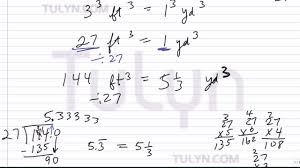 TULYN.COM
3³ ft³ = 1³ yd³
27 ft³ = 1 yd³
÷27
144 ft³ = 5 1/3 yd³
÷27
TULYN
5.33333
27 144.0
135
90
5.3̅ = 5 1/3
27 × 5 135
27 × 6 162
27 × 4 108
WWW.TULYN.COM